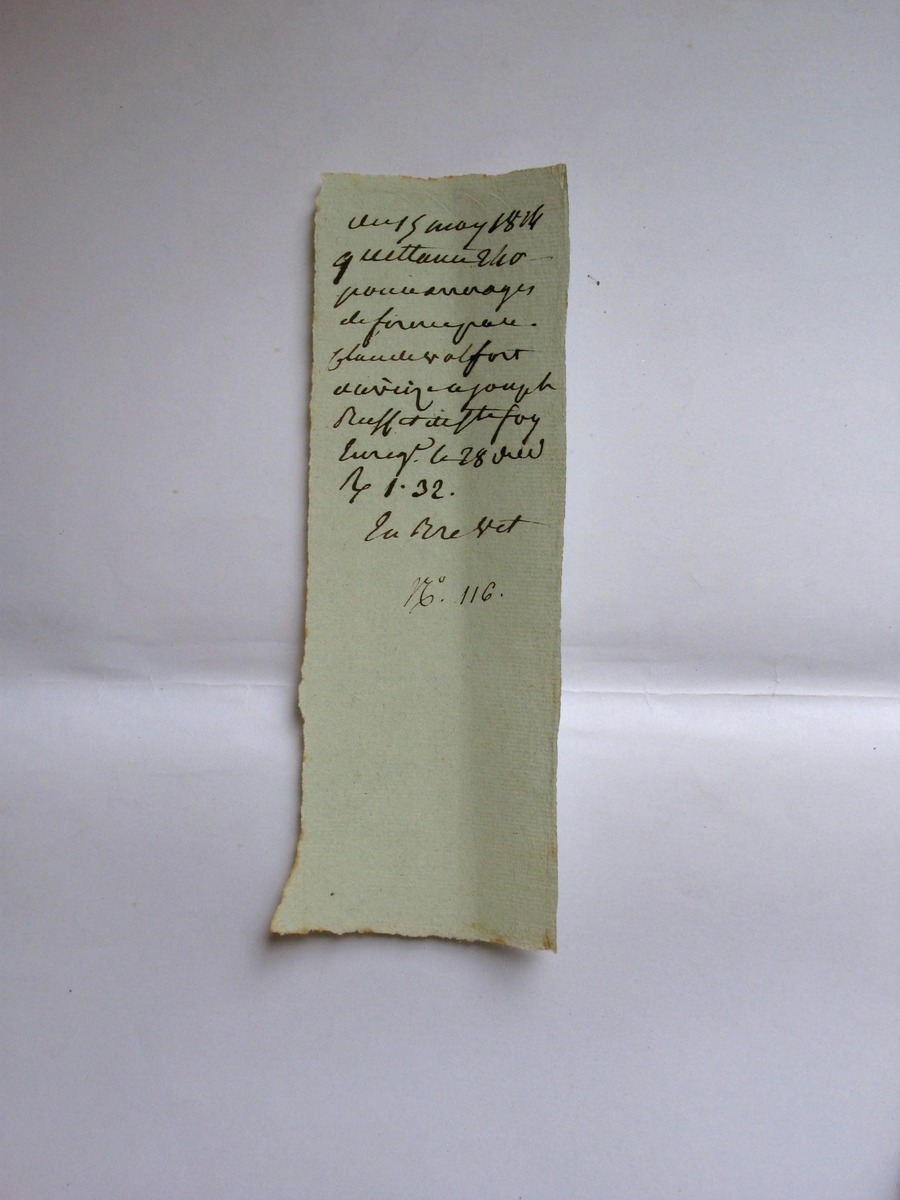 du 15 may 1814
quittance 240
pour arrerages
de ferme par
Claude
a joseph
de Ste foy
Enreg.t le 28 dud
R 1.32.
En Brevet
N.o 116.